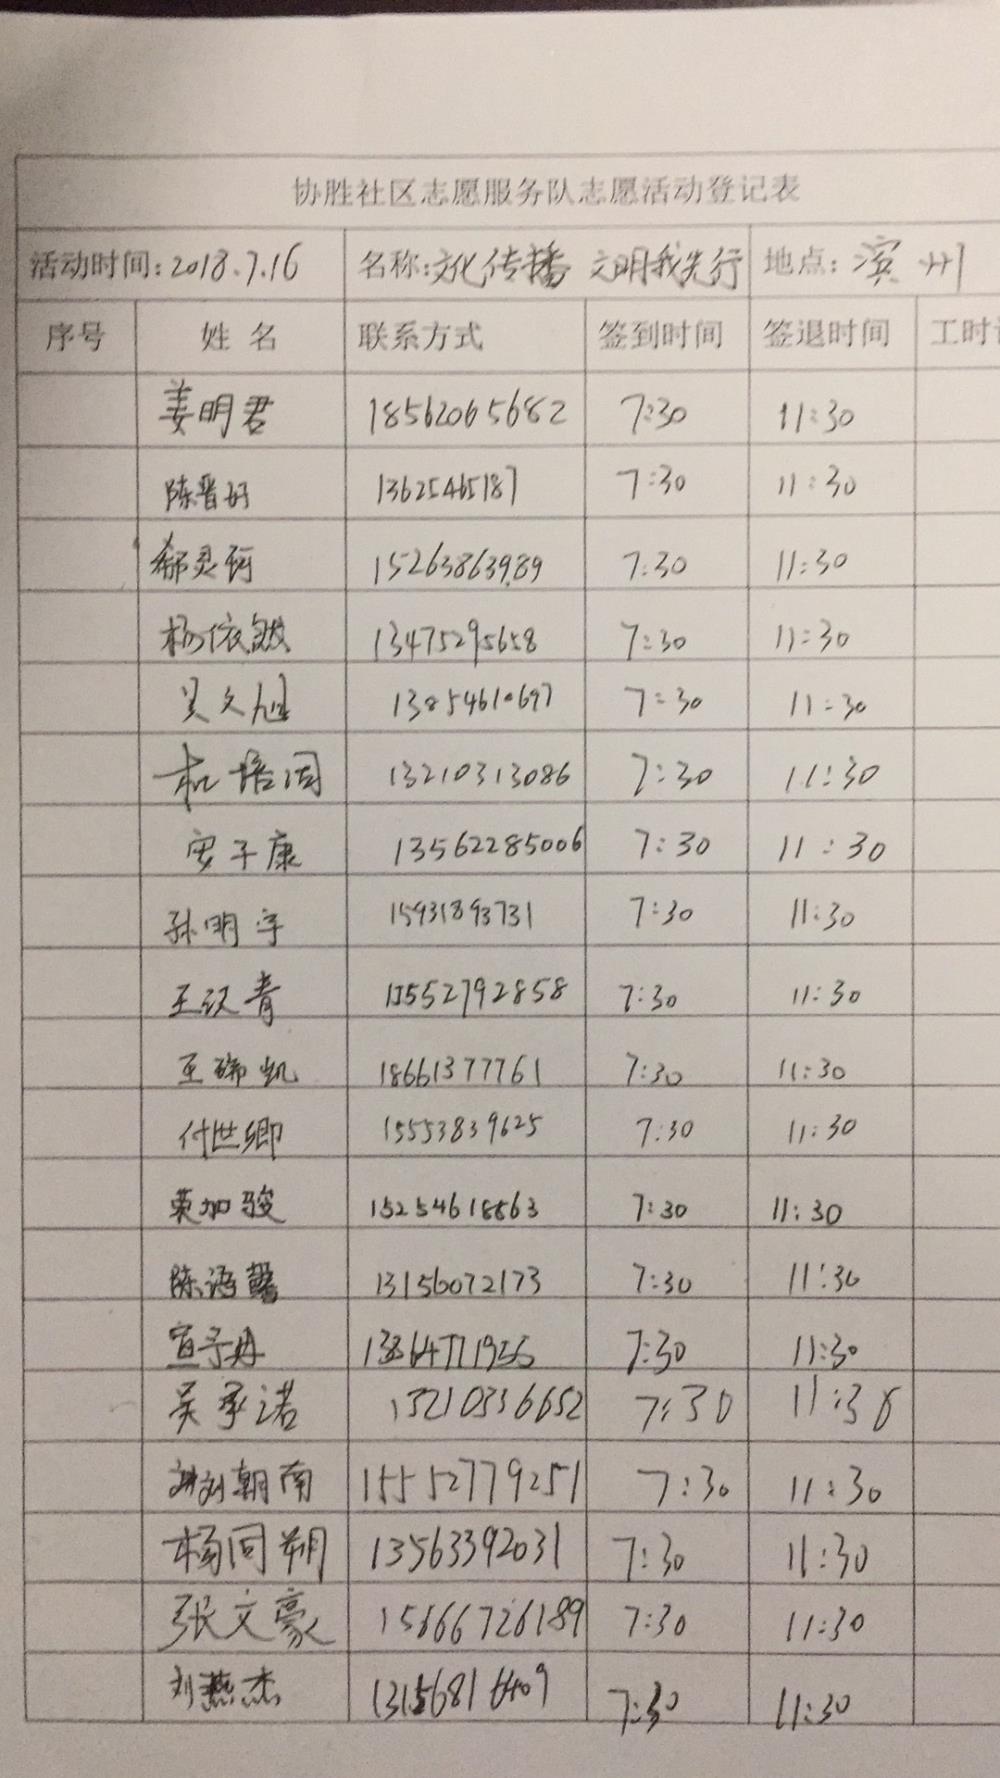 协胜社区志愿服务队志愿活动登记表
活动时间:2018.7.16 名称:文化传播 文明我先行 地点:滨州
序号 姓名 联系方式 签到时间 签退时间 工时
姜明君 18562065682 7:30 11:30
陈晋好 13625465187 7:30 11:30
郗灵钶 15263863989 7:30 11:30
杨依然 13475295658 7:30 11:30
吴文旭 13854610697 7:30 11:30
杭培周 13210313086 7:30 11:30
安子康 13562285006 7:30 11:30
孙明宇 15931893731 7:30 11:30
王汉青 13552792858 7:30 11:30
王 凯 18661377761 7:30 11:30
付世卿 15553839625 7:30 11:30
荣加骏 15254618563 7:30 11:30
陈语馨 13156072173 7:30 11:30
宣子丹 7:30 11:30
吴承诺 13210336652 7:30 11:30
刘朝南 15552779251 7:30 11:30
杨同朔 13563392031 7:30 11:30
张文豪 15666726189 7:30 11:30
刘燕杰 13156816409 7:30 11:30